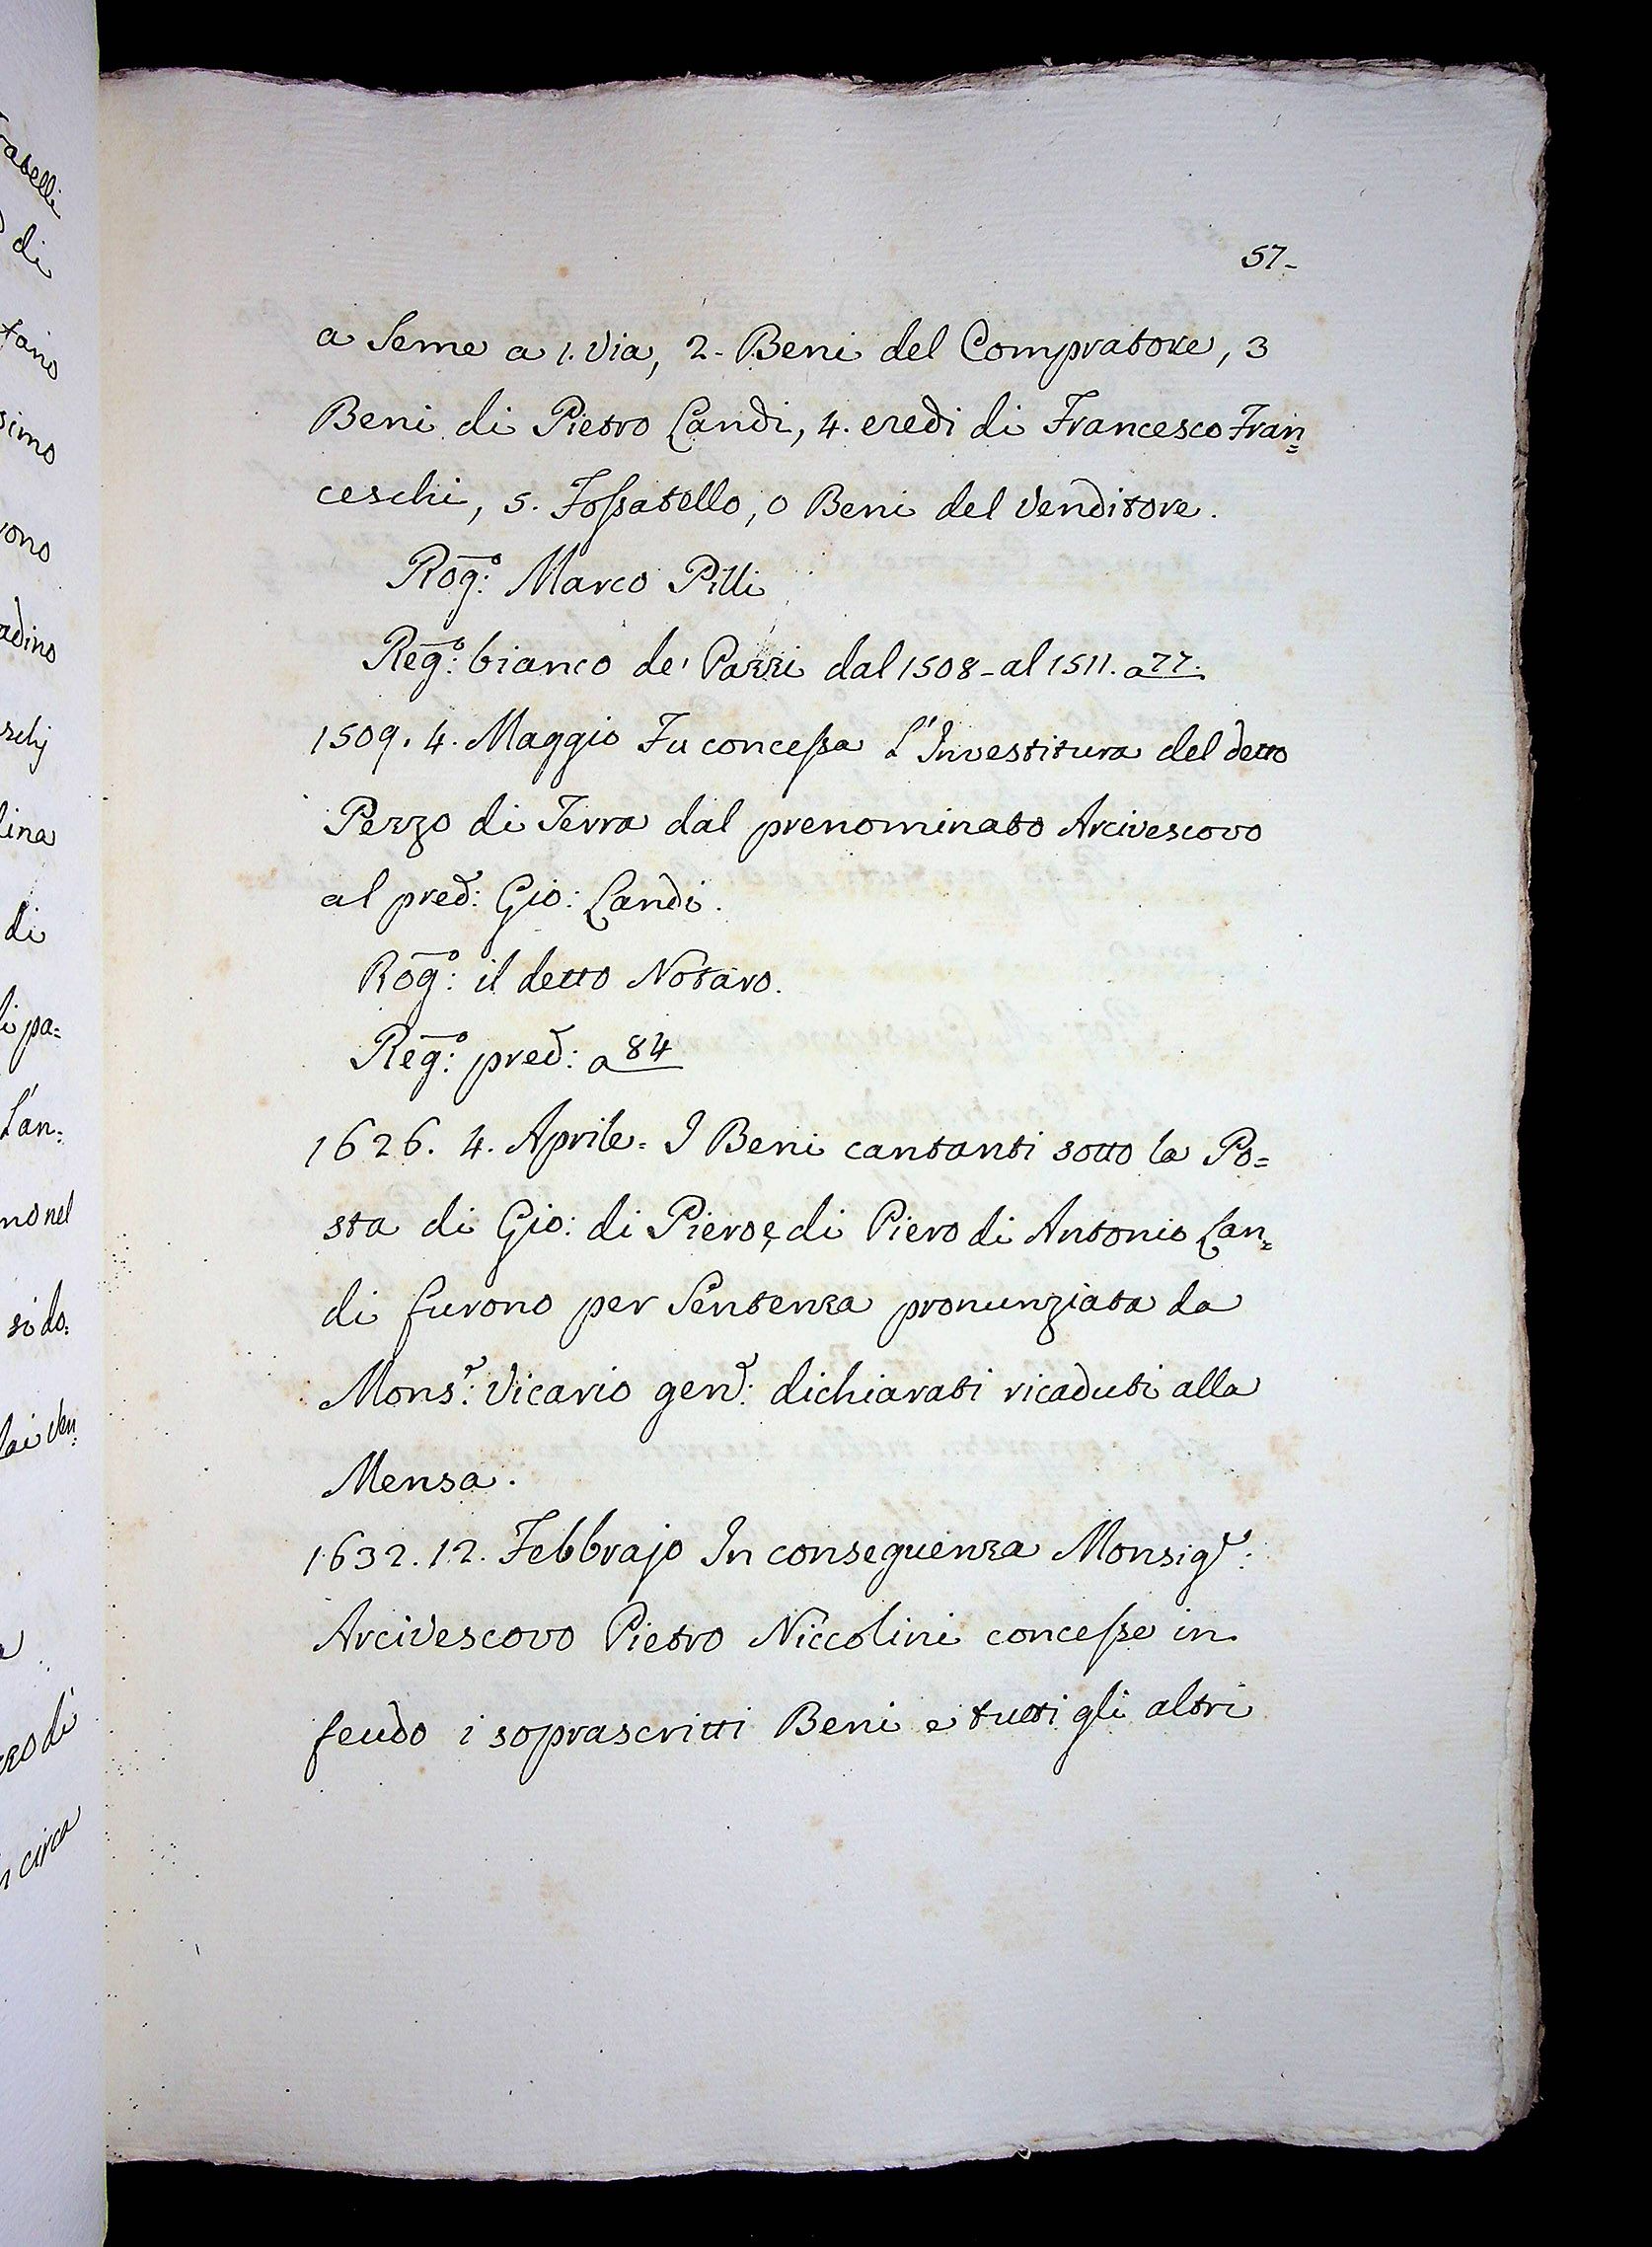 57-
a Seme a 1. Via, 2. Beni del Compratore, 3
Beni di Pietro Landi, 4. eredi di Francesco Fran=
ceschi, 5. Fossatello, o Beni del Venditore.
Rog:º Marco Pilli
Reg:º bianco de' Pazzi dal 1508-al 1511. a 77.
1509. 4. Maggio Fu concessa l'Investitura del detto
Pezzo di Terra dal prenominato Arcivescovo
al pred: Gio: Landi.
Rog:º il detto Notaro.
Reg:º pred: a 84
1626. 4. Aprile. I Beni cantanti sotto la Po=
sta di Gio: di Piero e, di Piero di Antonio Lan=
di furono per Sentenza pronunziata da
Mons:r Vicario gen: dichiarati ricaduti alla
Mensa.
1632. 12. Febbrajo In conseguenza Monsig:r
Arcivescovo Pietro Niccolini concesse in
feudo i soprascritti Beni e tutti gli altri